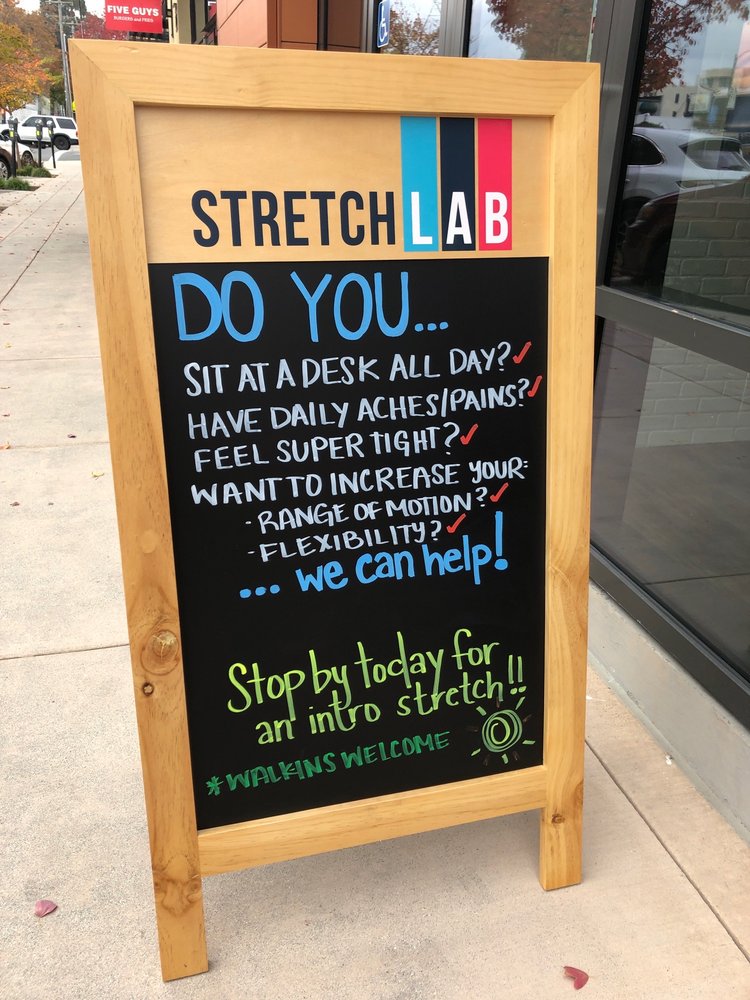 FIVE GUYS
BURGERS and FRIES
STRETCHLAB
DO YOU...
SIT AT A DESK ALL DAY?✓
HAVE DAILY ACHES/PAINS?✓
FEEL SUPER TIGHT?✓
WANT TO INCREASE YOUR:
- RANGE OF MOTION?✓
- FLEXIBILITY?✓
... we can help!
Stop by today for
an intro stretch!!
*WALK-INS WELCOME